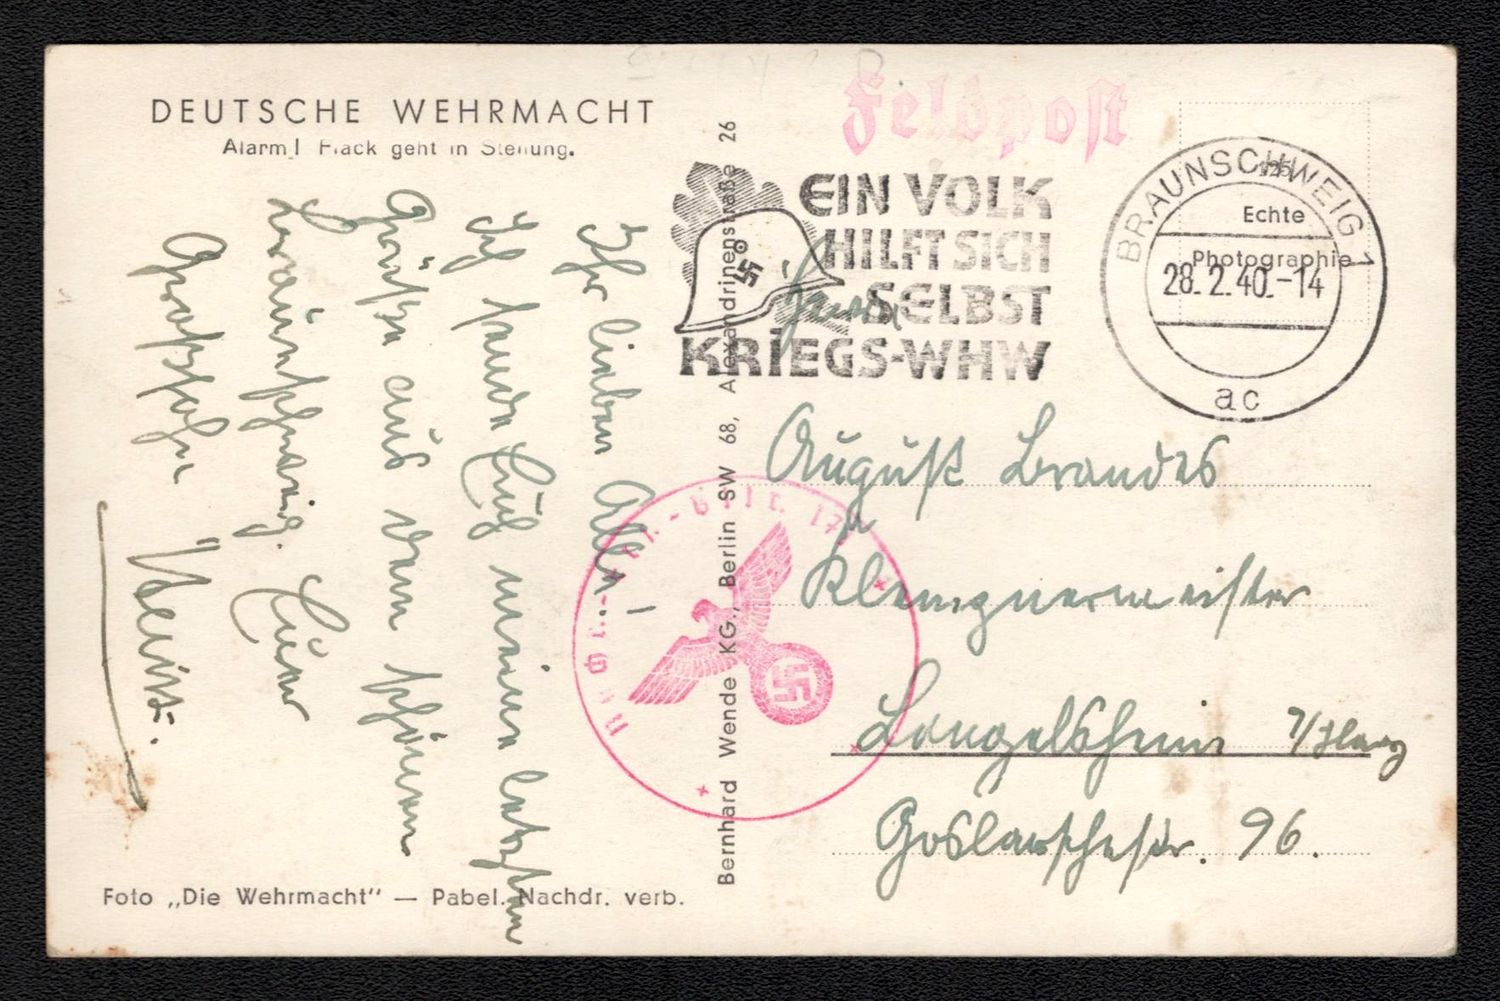 DEUTSCHE WEHRMACHT
Alarm! Flack geht in Stellung.
Ihr lieben All. !
Ich sende Euch meine letzten
Grüße aus dem schönen
Braunschweig. Euer
Feldpost
EIN VOLK
HILFT SICH
SELBST
KRIEGS-WHW
BRAUNSCHWEIG 1
28.2.40.-14
ac
Echte
Photographie
Herrn
August Brandes
Klempnermeister
Langelsheim /Harz
Goslarschestr. 96.
Bernhard Wende KG., Berlin SW 68, Alexandrinenstraße 26
Foto „Die Wehrmacht“ — Pabel. Nachdr. verb.